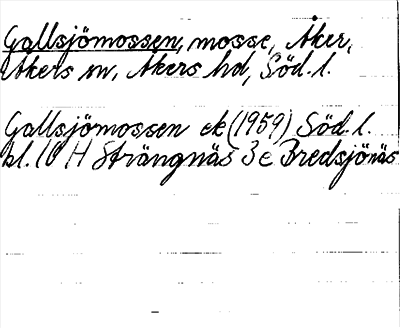 Gallsjömossen, mosse, Åker,
Åkers sn, Åkers hd, Söd. l.
Gallsjömossen ek (1959) Söd. l.
bl. 10 H Strängnäs 3 e Bredsjönäs